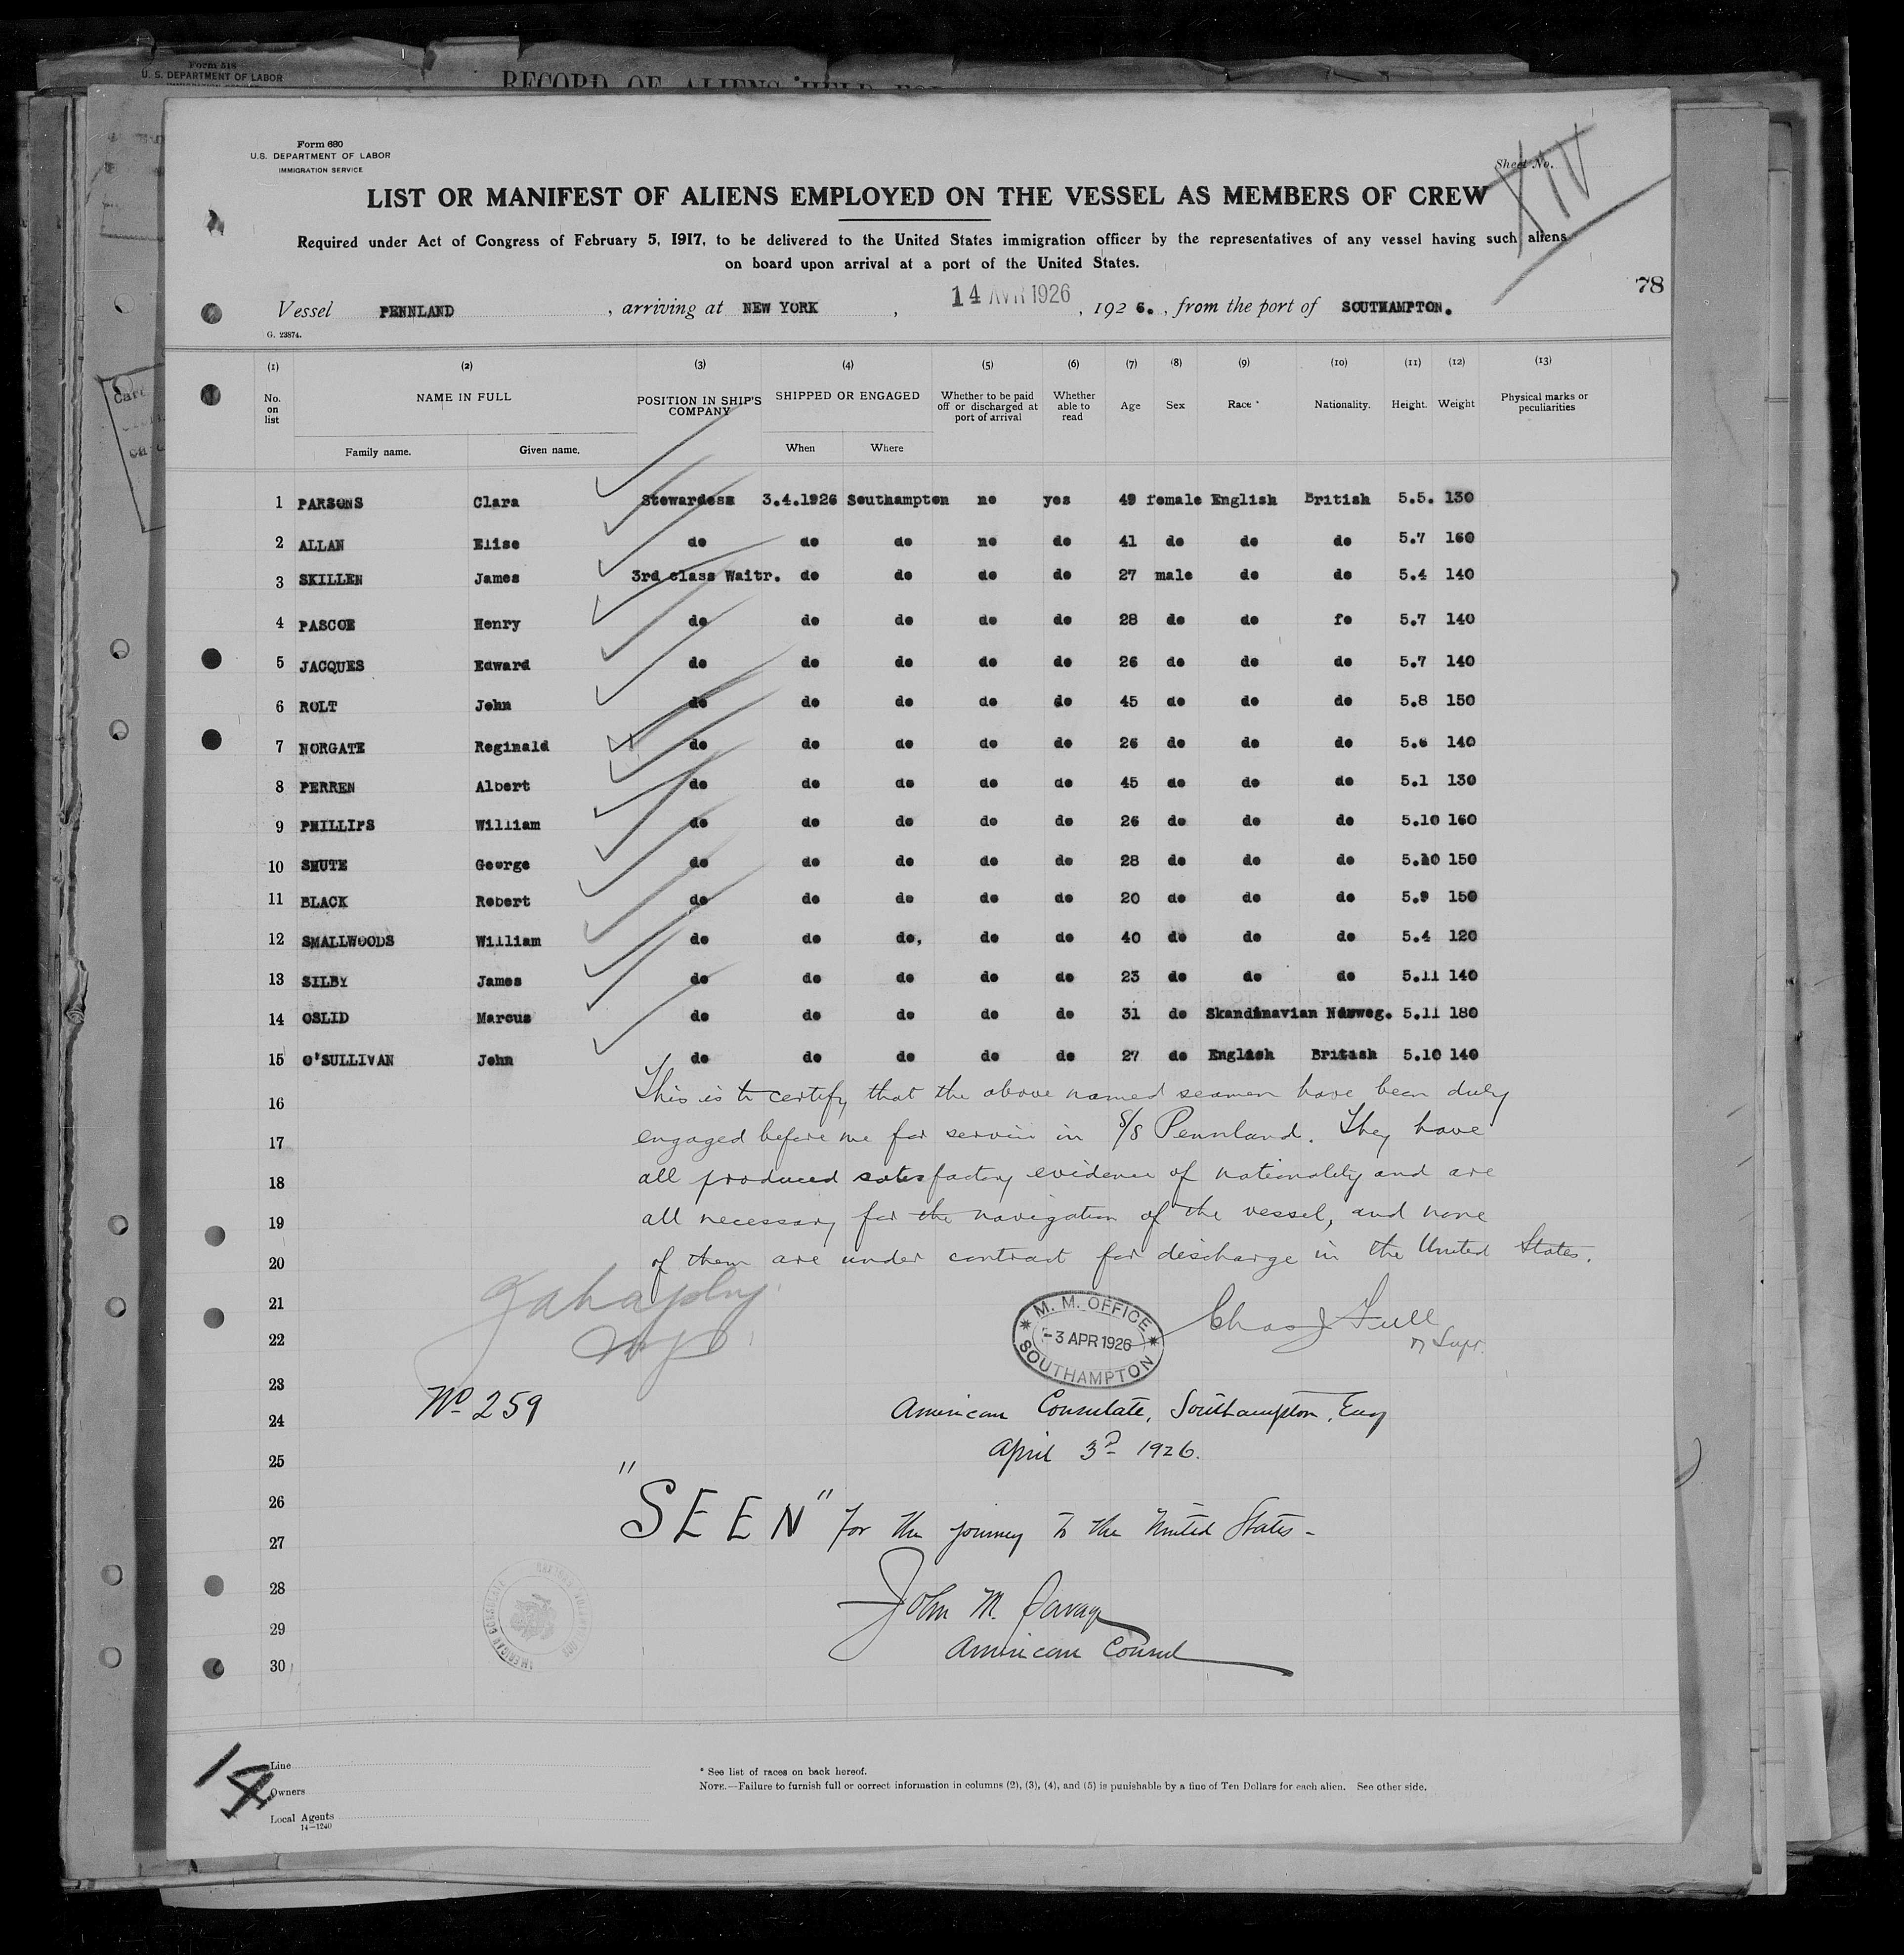 Form 518
U. S. DEPARTMENT OF LABOR
RECORD OF ALIENS HELD FOR
Form 680
U.S. DEPARTMENT OF LABOR
IMMIGRATION SERVICE
Sheet No.
XIV
LIST OR MANIFEST OF ALIENS EMPLOYED ON THE VESSEL AS MEMBERS OF CREW
Required under Act of Congress of February 5, 1917, to be delivered to the United States immigration officer by the representatives of any vessel having such aliens
on board upon arrival at a port of the United States.
78
Vessel PENNLAND , arriving at NEW YORK , 14 AVR 1926 , 192 6. , from the port of SOUTHAMPTON.
G. 23874.
(1) (2) (3) (4) (5) (6) (7) (8) (9) (10) (11) (12) (13)
No. on list NAME IN FULL POSITION IN SHIP'S COMPANY SHIPPED OR ENGAGED Whether to be paid off or discharged at port of arrival Whether able to read Age Sex Race * Nationality. Height. Weight Physical marks or peculiarities
Family name. Given name. When Where
1 PARSONS Clara Stewardess 3.4.1926 Southampton no yes 49 female English British 5.5. 130
2 ALLAN Elise do do do no do 41 do do do 5.7 160
3 SKILLEN James 3rd class Waitr. do do do do 27 male do do 5.4 140
4 PASCOE Henry do do do do do 28 do do fo 5.7 140
5 JACQUES Edward do do do do do 26 do do do 5.7 140
6 ROLT John do do do do do 45 do do do 5.8 150
7 NORGATE Reginald do do do do do 26 do do do 5.6 140
8 PERREN Albert do do do do do 45 do do do 5.1 130
9 PHILLIPS William do do do do do 26 do do do 5.10 160
10 SHUTE George do do do do do 28 do do do 5.10 150
11 BLACK Robert do do do do do 20 do do do 5.9 150
12 SMALLWOODS William do do do, do do 40 do do do 5.4 120
13 SILBY James do do do do do 23 do do do 5.11 140
14 OSLID Marcus do do do do do 31 do Skandinavian Norweg. 5.11 180
15 O'SULLIVAN John do do do do do 27 do English British 5.10 140
16 This is to certify that the above named seamen have been duly
17 engaged before me for service in S/S Pennland. They have
18 all produced satisfactory evidence of nationality and are
19 all necessary for the navigation of the vessel, and none
20 of them are under contract for discharge in the United States.
21
22
M. M. OFFICE
-3 APR 1926
SOUTHAMPTON
Supt.
23
24 No 259 American Consulate, Southampton, Eng
25 April 3d 1926.
26 "SEEN" for the journey to the United States -
27
28 John M. Savage
29 American Consul
30
AMERICAN CONSULATE
Line
Owners
Local Agents
14—1240
14
* See list of races on back hereof.
NOTE.—Failure to furnish full or correct information in columns (2), (3), (4), and (5) is punishable by a fine of Ten Dollars for each alien. See other side.